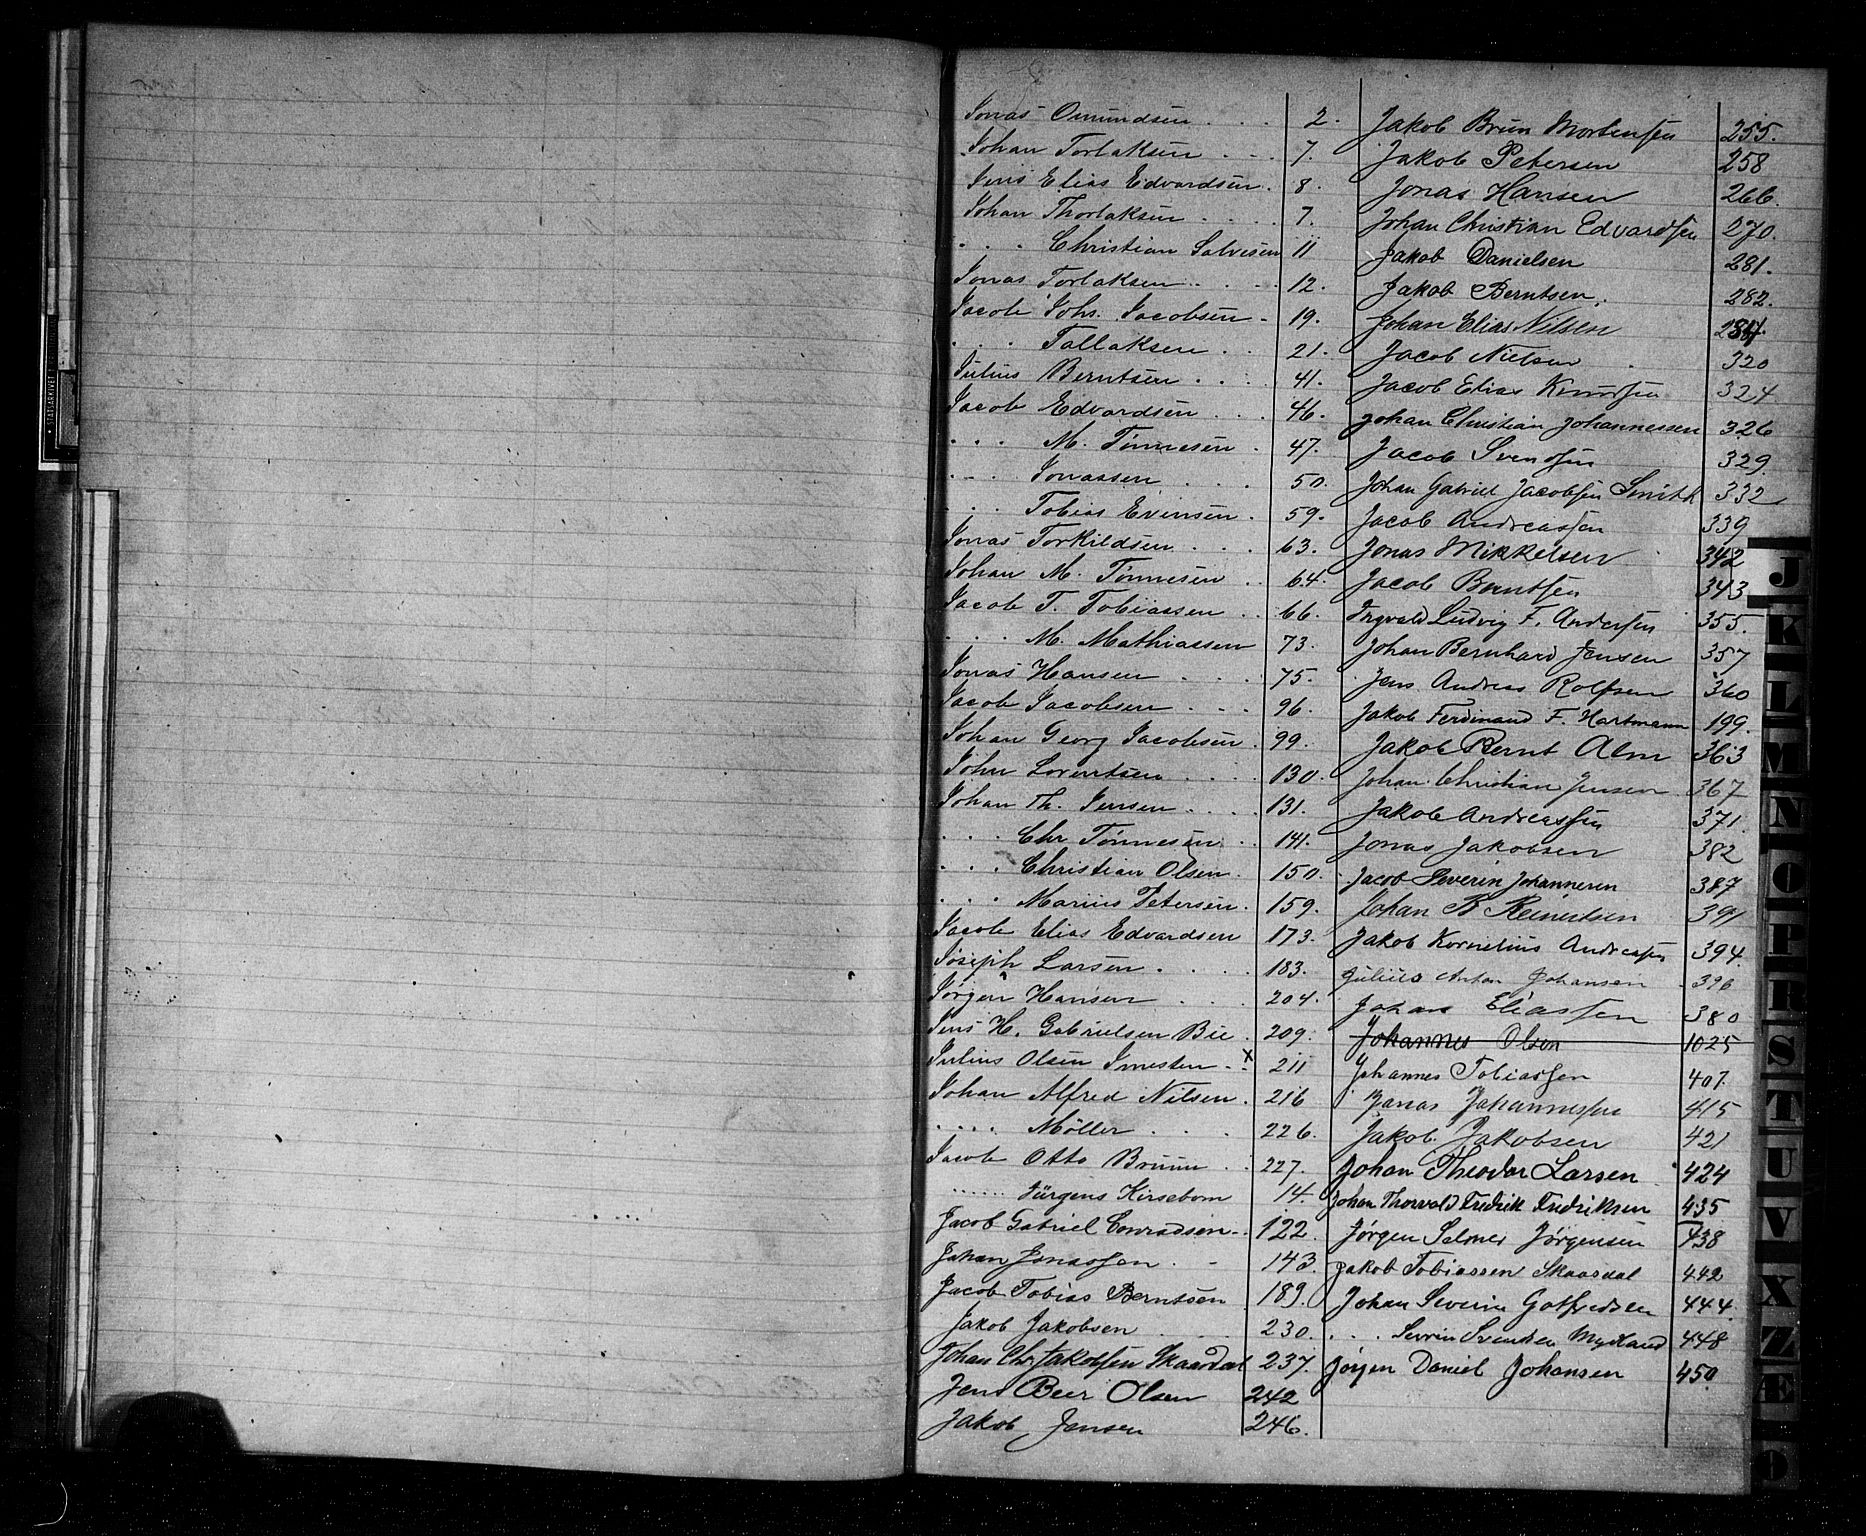 Jonas Omundsen . . . 2.
Johan Torlaksen . . . 7.
Jens Elias Edvardsen . 8.
Johan Thorlaksen . . . . 7.
. . . Christian Salvesen 11
Jonas Torlaksen . . . . 12.
Jacob Johs. Jacobsen . 19.
. . . Tallaksen . . . 21.
Julius Berntsen . . . . 41.
Jacob Edvardsen . . . 46.
. . . M. Tönnesen . 47.
. . . Jonassen . . . 50.
. . . Tobias Evensen . 59.
Jonas Torkildsen . . . 63.
Johan M. Tönnesen . . 64.
Jacob T. Tobiassen . . 66.
. . . M. Mathiassen 73.
Jonas Hansen . . . . 75.
Jacob Jacobsen . . . 96.
Johan Georg Jacobsen . 99.
John Lorentsen . . . . 130.
Johan Th. Jensen . . . . 131.
. . . Chr Tönnesen . . 141.
. . . Christian Olsen . 150.
. . . Marius Petersen . 159.
Jacob Elias Edvardsen 173.
Joseph Larsen . . . . 183.
Jörgen Hansen . . . 204.
Jens H. Gabrielsen Bie . 209.
Julius Olsen Imesten . x 211
Johan Alfred Nilsen . 216
. . . . Möller . . . 226.
Jacob Otto Bruun . . 227.
. . . . . . Jürgens Kirsebom 14.
Jacob Gabriel Conradsen . 122.
Johan Jonassen . - 143.
Jacob Tobias Berntsen 189.
Jakob Jakobsen . . . . 230.
Johan Chr. Jakobsen Skaasdal 237.
Jens Beer Olsen 242
Jakob Jensen 246.
Jakob Brun Mortensen 255.
Jakob Petersen 258
Jonas Hansen 266.
Johan Christian Edvardsen 270.
Jakob Danielsen 281.
Jakob Berntsen. 282.
Johan Elias Nilsen
Jacob Nielsen . 320
Jacob Elias Knudsen 324
Johan Christian Johannessen 326
Jacob Svendsen 329.
Johan Gabriel Jacobsen Smith 332
Jacob Andreassen 339
Jonas Mikkelsen 342
Jacob Berntsen 343
Ingvald Ludvig F. Andersen 355.
Johan Bernhard Jensen 357
Jens Andreas Rolfsen 360
Jakob Ferdinand F. Hartmann 199.
Jakob Bernt Alm 363
Johan Christian Jensen 367
Jakob Andreassen 371.
Jonas Jakobsen 382
Jacob Severin Johannesen 387
Johan B Reinertsen 391
Jakob Kornelius Andreasen 394.
Julius Anton Johansen 390
Johan Eliassen 380
Johannes Olsen 1025
Johannes Tobiassen 407.
Jonas Johannessen 415
Jakob Jakobsen 421
Johan Theodor Larsen 424
Johan Thorvald Fredrik Fredriksen 435
Jørgen Selmer Jørgensen 438
Jakob Tobiassen Skaasdal 442
Johan Severin Gotfredsen 444.
. . . Severin Svendsen Mydland 448
Jørgen Daniel Johansen 450
J
K
L
M
N
O
P
R
S
T
U
V
X
Z
Æ
Ø
STATSARKIVET